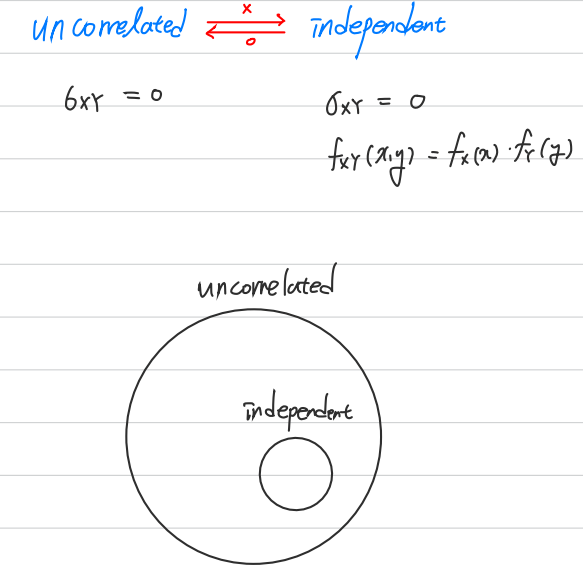 uncorrelated x o independent
σxY = 0 σxY = 0
fxY(x,y) = fx(x)·fY(y)
uncorrelated
independent